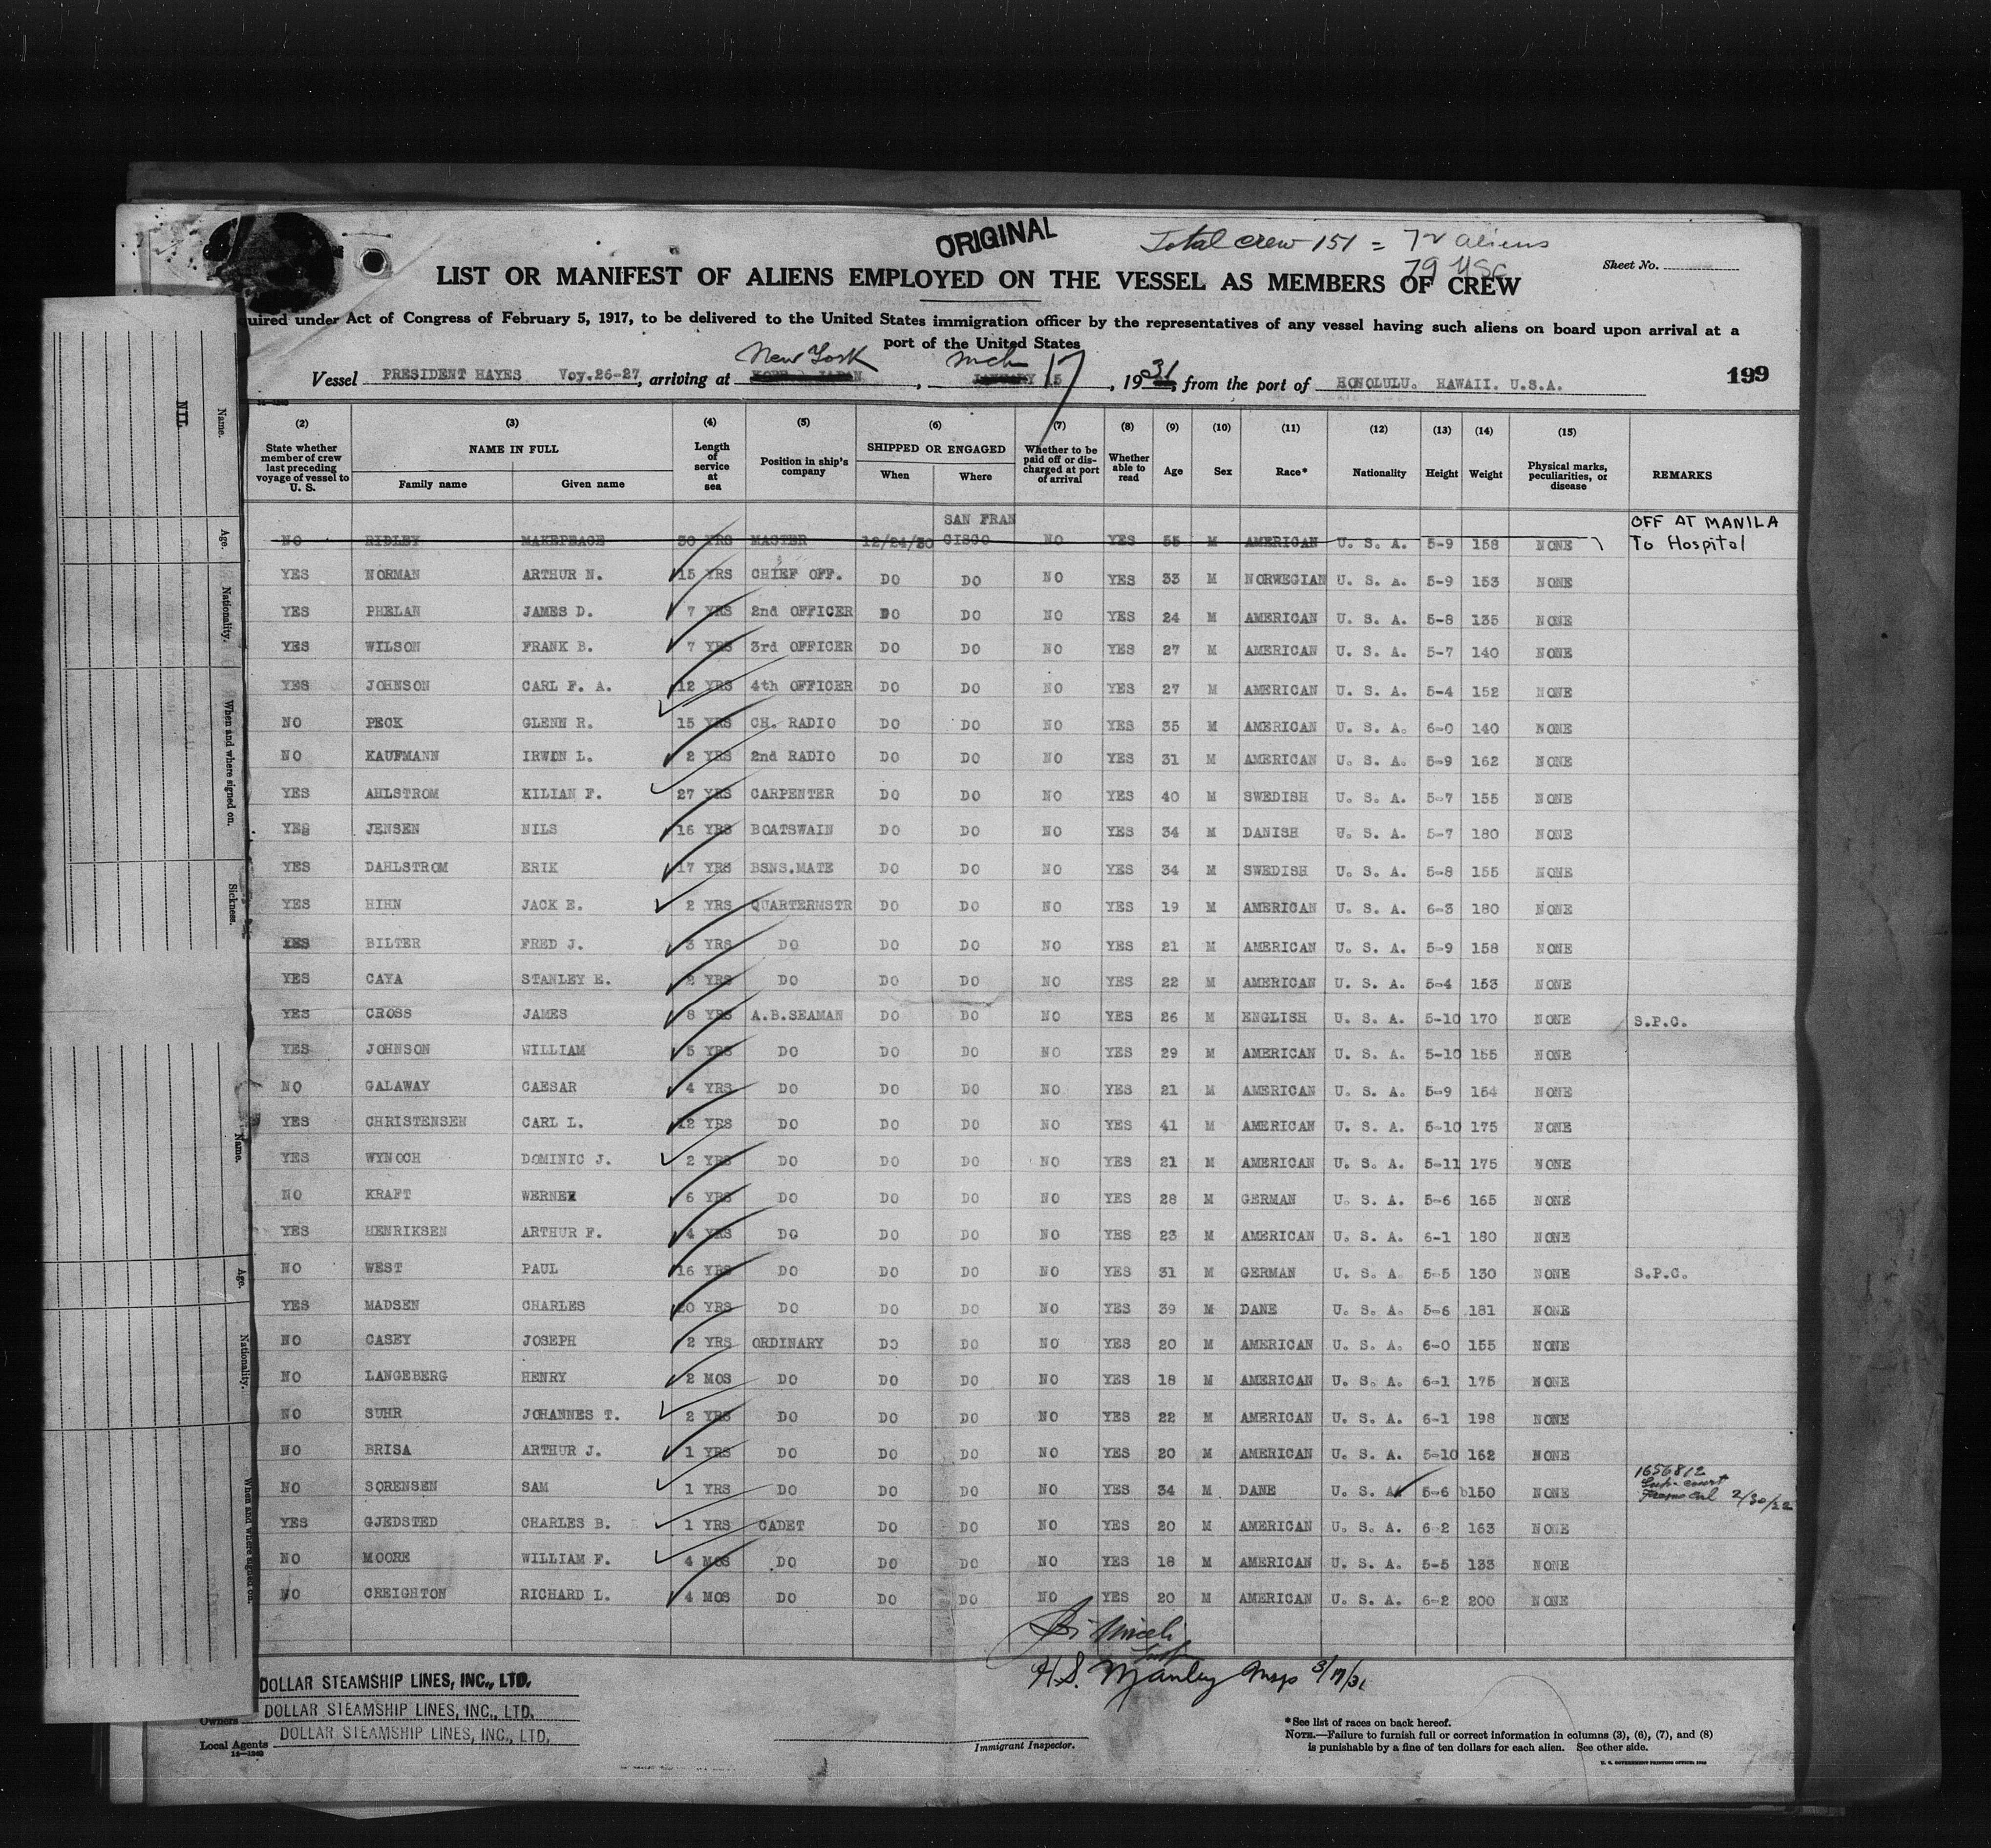 ORIGINAL
Total crew 151 = 72 aliens
79 USC
Sheet No.
LIST OR MANIFEST OF ALIENS EMPLOYED ON THE VESSEL AS MEMBERS OF CREW
quired under Act of Congress of February 5, 1917, to be delivered to the United States immigration officer by the representatives of any vessel having such aliens on board upon arrival at a
port of the United States
Vessel PRESIDENT HAYES Voy.26-27, arriving at New York KOBE, JAPAN, Mch 17 JANUARY 15, 1931, from the port of HONOLULU. HAWAII. U.S.A.
199
(2) (3) (4) (5) (6) (7) (8) (9) (10) (11) (12) (13) (14) (15)
State whether member of crew last preceding voyage of vessel to U. S. NAME IN FULL Family name Given name Length of service at sea Position in ship's company SHIPPED OR ENGAGED When Where Whether to be paid off or discharged at port of arrival Whether able to read Age Sex Race* Nationality Height Weight Physical marks, peculiarities, or disease REMARKS
NO RIDLEY MAKEPEACE 30 YRS MASTER 12/24/30 SAN FRAN CISCO NO YES 55 M AMERICAN U. S. A. 5-9 158 NONE OFF AT MANILA To Hospital
YES NORMAN ARTHUR N. 15 YRS CHIEF OFF. DO DO NO YES 33 M NORWEGIAN U. S. A. 5-9 153 NONE
YES PHELAN JAMES D. 7 YRS 2nd OFFICER DO DO NO YES 24 M AMERICAN U. S. A. 5-8 135 NONE
YES WILSON FRANK B. 7 YRS 3rd OFFICER DO DO NO YES 27 M AMERICAN U. S. A. 5-7 140 NONE
YES JOHNSON CARL F. A. 12 YRS 4th OFFICER DO DO NO YES 27 M AMERICAN U. S. A. 5-4 152 NONE
NO PECK GLENN R. 15 YRS CH. RADIO DO DO NO YES 35 M AMERICAN U. S. A. 6-0 140 NONE
NO KAUFMANN IRWIN L. 2 YRS 2nd RADIO DO DO NO YES 31 M AMERICAN U. S. A. 5-9 162 NONE
YES AHLSTROM KILIAN F. 27 YRS CARPENTER DO DO NO YES 40 M SWEDISH U. S. A. 5-7 155 NONE
YES JENSEN NILS 16 YRS BOATSWAIN DO DO NO YES 34 M DANISH U. S. A. 5-7 180 NONE
YES DAHLSTROM ERIK 17 YRS BSNS.MATE DO DO NO YES 34 M SWEDISH U. S. A. 5-8 155 NONE
YES HIHN JACK E. 2 YRS QUARTERMSTR DO DO NO YES 19 M AMERICAN U. S. A. 6-3 180 NONE
YES BILTER FRED J. 3 YRS DO DO DO NO YES 21 M AMERICAN U. S. A. 5-9 158 NONE
YES CAYA STANLEY E. 2 YRS DO DO DO NO YES 22 M AMERICAN U. S. A. 5-4 153 NONE
YES CROSS JAMES 8 YRS A.B.SEAMAN DO DO NO YES 26 M ENGLISH U. S. A. 5-10 170 NONE S.P.C.
YES JOHNSON WILLIAM 5 YRS DO DO DO NO YES 29 M AMERICAN U. S. A. 5-10 155 NONE
NO GALAWAY CAESAR 4 YRS DO DO DO NO YES 21 M AMERICAN U. S. A. 5-9 154 NONE
YES CHRISTENSEN CARL L. 12 YRS DO DO DO NO YES 41 M AMERICAN U. S. A. 5-10 175 NONE
YES WYNOCH DOMINIC J. 2 YRS DO DO DO NO YES 21 M AMERICAN U. S. A. 5-11 175 NONE
NO KRAFT WERNER 6 YRS DO DO DO NO YES 28 M GERMAN U. S. A. 5-6 165 NONE
YES HENRIKSEN ARTHUR F. 4 YRS DO DO DO NO YES 23 M AMERICAN U. S. A. 6-1 180 NONE
NO WEST PAUL 16 YRS DO DO DO NO YES 31 M GERMAN U. S. A. 5-5 130 NONE S.P.C.
YES MADSEN CHARLES 20 YRS DO DO DO NO YES 39 M DANE U. S. A. 5-6 181 NONE
NO CASEY JOSEPH 2 YRS ORDINARY DO DO NO YES 20 M AMERICAN U. S. A. 6-0 155 NONE
NO LANGEBERG HENRY 2 MOS DO DO DO NO YES 18 M AMERICAN U. S. A. 6-1 175 NONE
NO SUHR JOHANNES T. 2 YRS DO DO DO NO YES 22 M AMERICAN U. S. A. 6-1 198 NONE
NO BRISA ARTHUR J. 1 YRS DO DO DO NO YES 20 M AMERICAN U. S. A. 5-10 162 NONE
NO SORENSEN SAM 1 YRS DO DO DO NO YES 34 M DANE U. S. A. 5-6 150 NONE 1656812 Sup. court Fresno Cal 2/20/22
YES GJEDSTED CHARLES B. 1 YRS CADET DO DO NO YES 20 M AMERICAN U. S. A. 6 2 163 NONE
NO MOORE WILLIAM F. 4 MOS DO DO DO NO YES 18 M AMERICAN U. S. A. 5-5 133 NONE
NO CREIGHTON RICHARD L. 4 MOS DO DO DO NO YES 20 M AMERICAN U. S. A. 6-2 200 NONE
H.S. Manley Insp 3/17/31
DOLLAR STEAMSHIP LINES, INC., LTD.
Owners DOLLAR STEAMSHIP LINES, INC., LTD.
Local Agents DOLLAR STEAMSHIP LINES, INC., LTD.
Immigrant Inspector.
*See list of races on back hereof.
NOTE.—Failure to furnish full or correct information in columns (3), (6), (7), and (8)
is punishable by a fine of ten dollars for each alien. See other side.
U. S. GOVERNMENT PRINTING OFFICE
NIL
Name.
Age.
Nationality.
When and where signed on.
Sickness.
Name.
Age.
Nationality.
When and where signed on.